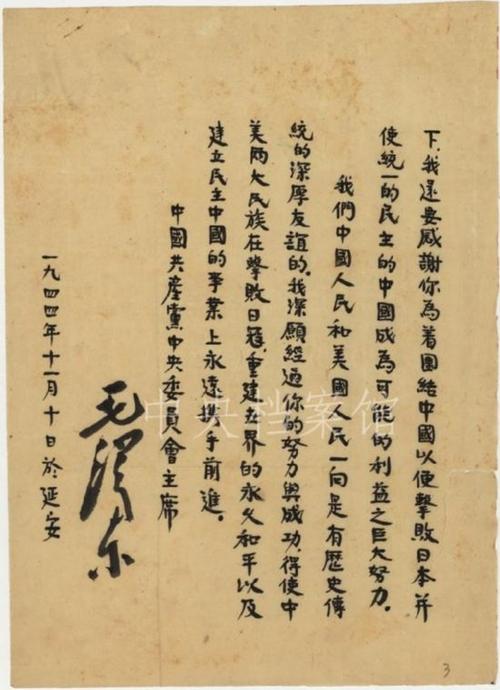 下，我還要感謝你為着團結中國以便擊敗日本并
使統一的民主的中國成為可能的利益之巨大努力。
我們中國人民和美國人民一向是有歷史傳
統的深厚友誼的。我深願經過你的努力與成功，得使中
美兩大民族在擊敗日寇，重建世界的永久和平以及
建立民主中國的事業上永遠携手前進。
中國共產黨中央委員會主席
毛澤东
一九四四年十一月十日於延安
中央档案馆
3